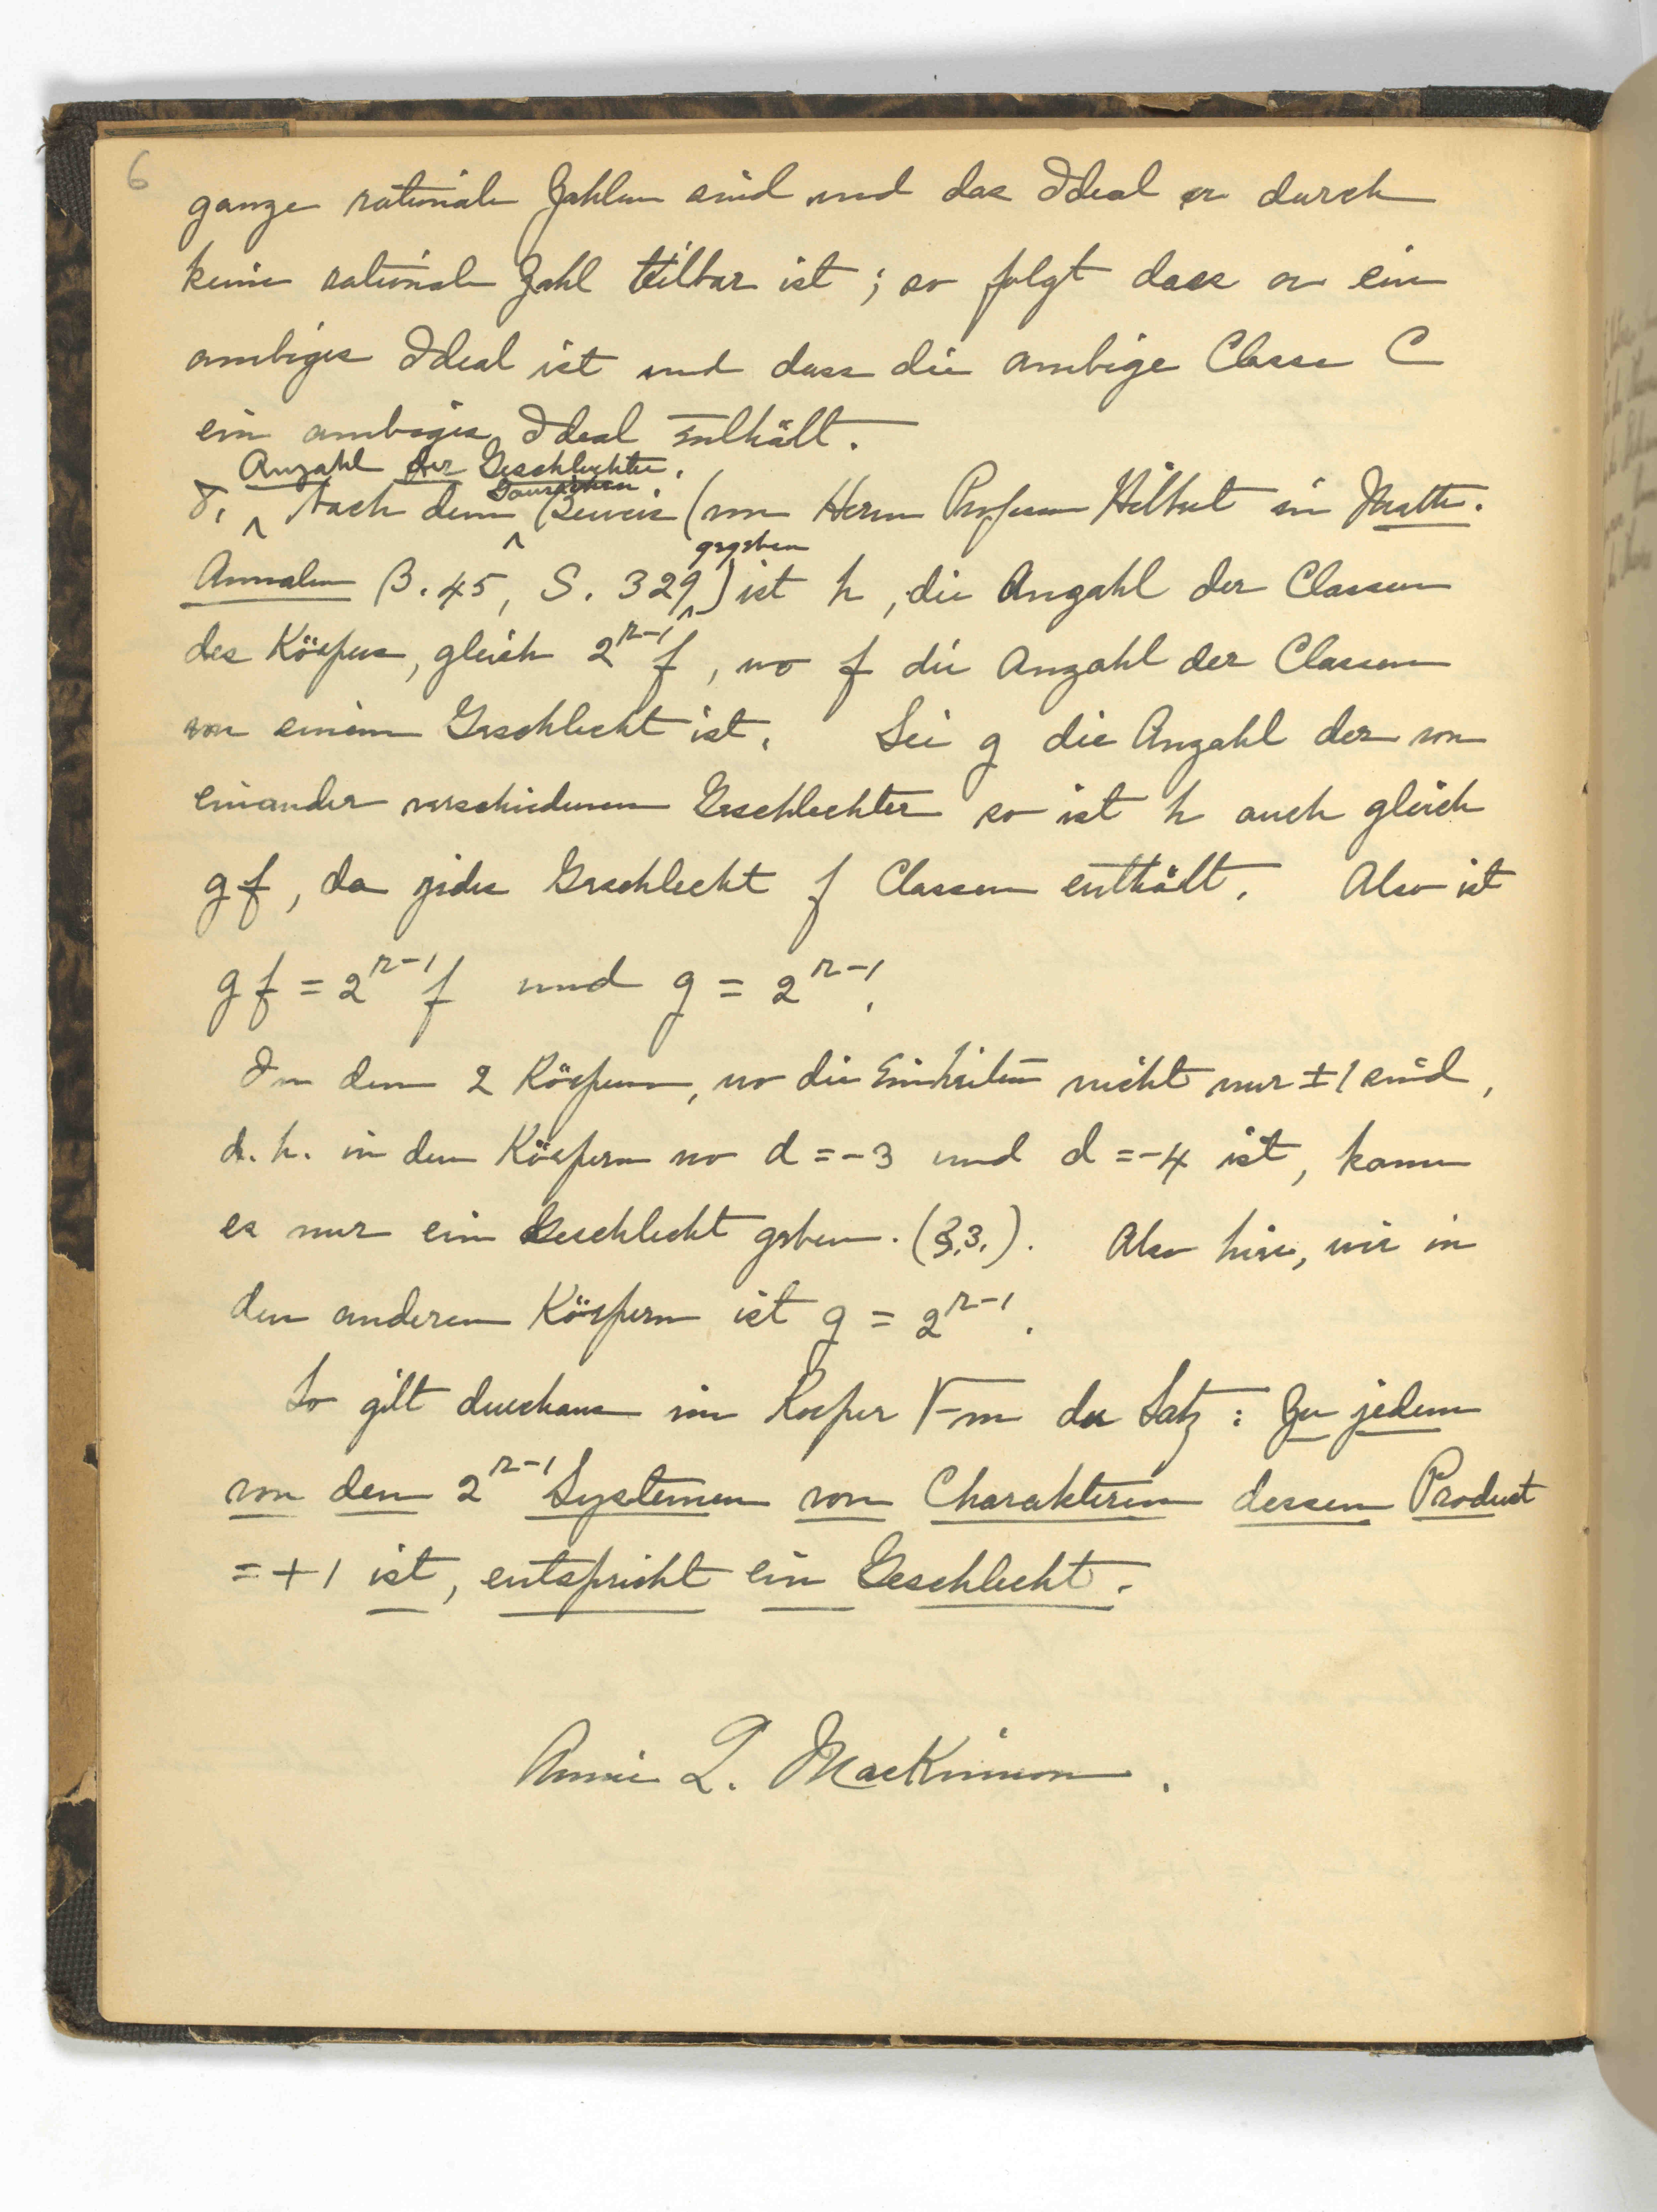 6
ganze rationale Zahlen sind und das Ideal a durch
keine rationale Zahl teilbar ist; so folgt dass a ein
ambiges Ideal ist und dass die ambige Classe C
ein ambiges Ideal enthält.
Anzahl der Geschlechter.
Nach dem Beweis (von Herrn Professor Hilbert in Math.
gegeben
Annalen B. 45, S. 329) ist h, die Anzahl der Classen
des Körpers, gleich 2^{r-1} f, wo f die Anzahl der Classen
von einem Geschlecht ist. Sei g die Anzahl der von
einander verschiedenen Geschlechter so ist h auch gleich
gf, da jedes Geschlecht f Classen enthält. Also ist
gf = 2^{r-1} f und g = 2^{r-1}.
In den 2 Körpern, wo die Einheiten nicht nur ±1 sind,
d. h. in den Körpern wo d = -3 und d = -4 ist, kann
es nur ein Geschlecht geben. (§.3.). Also hier, wie in
den anderen Körpern ist g = 2^{r-1}.
So gilt durchaus im Korper √-m der Satz: Zu jedem
von den 2^{r-1} Systemen von Charakteren dessen Product
= +1 ist, entspricht ein Geschlecht.
Annie L. MacKinnon.